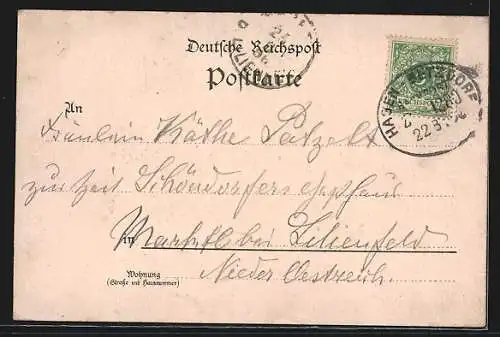 Deutsche Reichspost
Postkarte
An
Fräulein Käthe Patzelt
zur Zeit Schöndorfers
in Marktl bei Lilienfeld
Nieder Oestreich.
Wohnung
(Straße und Hausnummer)
HAGEN BETZDORF
22 8